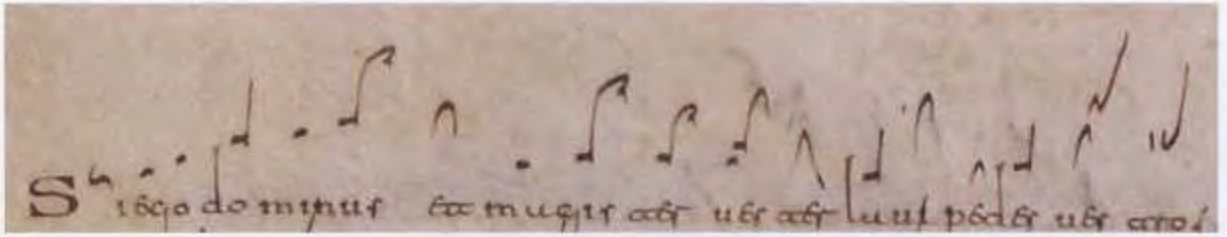 Si ego dominus et magister uester laui pedes uestros